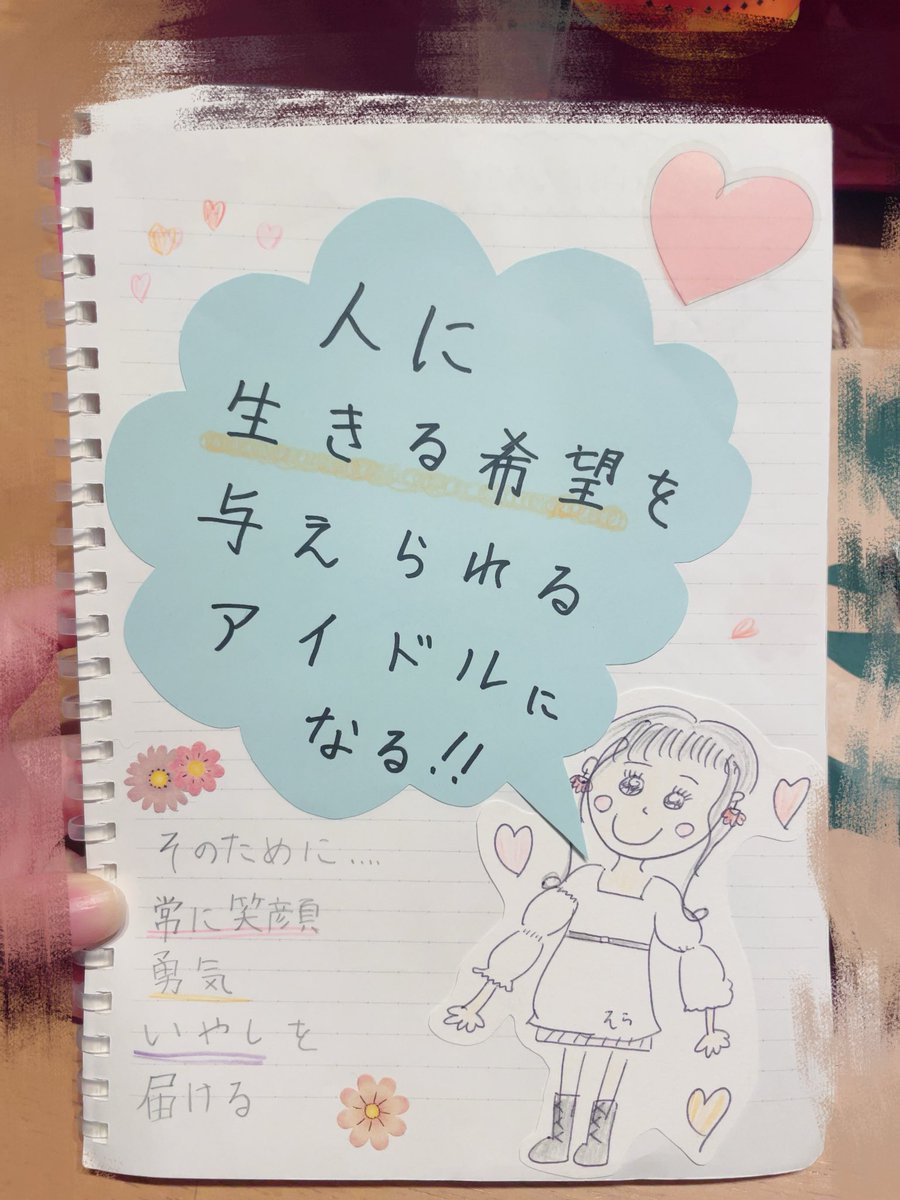 人に
生きる希望を
与えられる
アイドルに
なる!!
そのために....
常に笑顔
勇気
いやしを
届ける
えら